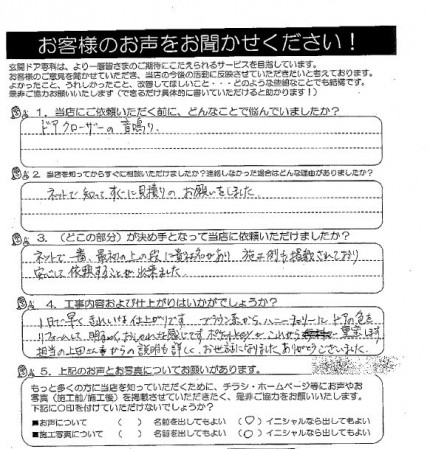 お客様のお声をお聞かせください！
玄関ドア専科は、より一層皆さまのご期待にこたえられるサービスを目指しています。
お客様のご意見を聞かせていただき、当店の今後の活動に反映させていただきたいと考えております。
よかったこと、うれしかったこと、改善してほしいこと・・・どのような些細なことでも結構です。
是非ご協力お願いいたします（できるだけ具体的に書いていただけると助かります！）
1．当店にご依頼いただく前に、どんなことで悩んでいましたか？
ドアクローザーの音鳴り、
2．当店を知ってからすぐに相談いただけましたか？連絡しなかった場合はどんな理由がありましたか？
ネットで知ってすぐに見積りのお願いをしました。
3．（どこの部分）が決め手となって当店に依頼いただけましたか？
ネットで一番、最初の上の段に貴社名があり 施工例も掲載されており
安心して依頼することが出来ました。
4．工事内容および仕上がりはいかがでしょうか？
1日で早く きれいな仕上がりです ブラウン系から、ハニーチェリーに ドアの色を
リフォームして、明るく、おしゃれな感じです
これから 重宝します
担当の上田さまからの説明も詳しく、お世話になりました ありがとうございました
5．上記のお声とお写真についてお願いがあります。
もっと多くの方に当店を知っていただくために、チラシ・ホームページ等にお声やお
写真（施工前/施工後）を掲載させていただきたく、是非ご協力をお願いいたします。
下記に○印を付けていただけないでしょうか？
■お声について （ ） 名前を出してもよい （○）イニシャルなら出してもよい
■施工写真について （ ） 名前を出してもよい （○）イニシャルなら出してもよい